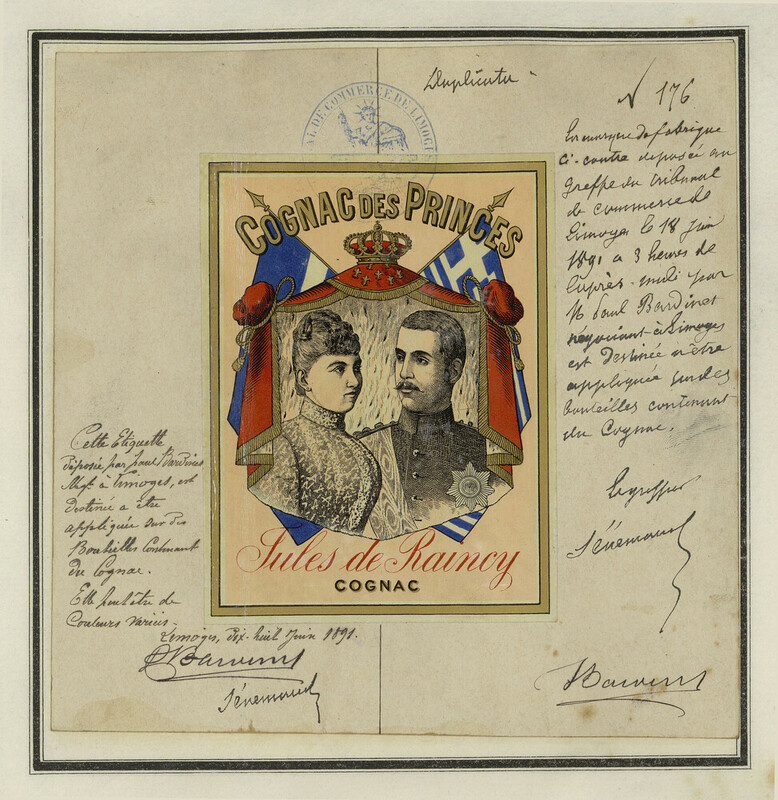 Duplicata
N 176
La marque de fabrique
ci-contre déposée au
greffe du tribunal
de commerce de
Limoges le 18 Juin
1891 a 3 heures de
l'après-midi par
M Paul Bardinet
négociant à Limoges
est destinée à être
appliquée sur des
bouteilles contenant
du Cognac.
Le greffier
Sénemaud
AL DE COMMERCE DE LIMOGES
COGNAC DES PRINCES
Jules de Raincy
COGNAC
Cette Etiquette
déposée par Paul Bardinet
Négt à Limoges, est
destinée a être
appliquée sur des
Bouteilles Contenant
du Cognac.
Elle peut être de
Couleurs variées.
Limoges, dix-huit Juin 1891.
PBardinet
Sénemaud
PBardinet